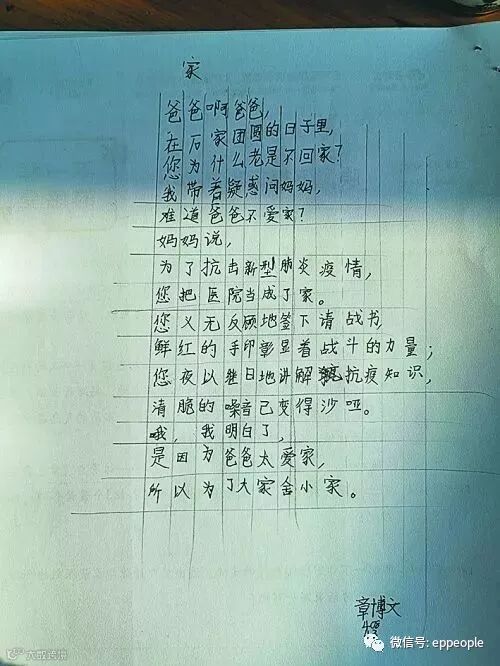 家
爸爸啊爸爸,
在万家团圆的日子里,
您为什么老是不回家?
我带着疑惑问妈妈,
难道爸爸不爱家?
妈妈说,
为了抗击新型肺炎疫情,
您把医院当成了家。
您义无反顾地签下请战书,
鲜红的手印彰显着战斗的力量;
您夜以继日地讲解抗疫知识,
清脆的噪音已变得沙哑。
哦,我明白了,
是因为爸爸太爱家,
所以为了大家舍小家。
章博文
微信号: eppeople
大数跨境